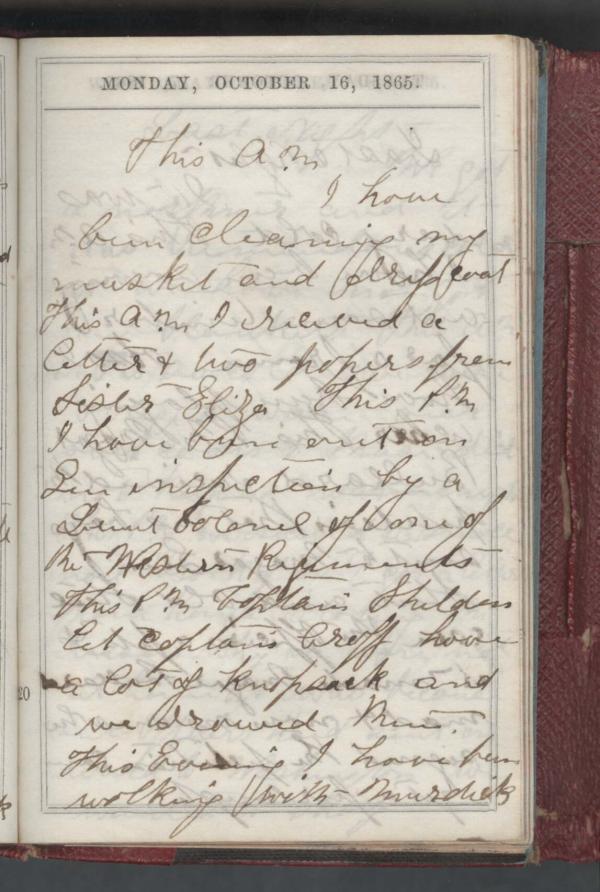 MONDAY, OCTOBER 16, 1865.
This A.M
I have
been cleaning my
musket and dress coat
This A.M I received a
letter & two papers from
Sister Eliza This P.M
I have been out on
an inspection by a
Lieut Colonel of one of
the Western Regiments
This P.M Captain Shelden
let Captain Groff have
a lot of knapsack and
we drawed them.
This Evening I have been
walking with Murdick
20